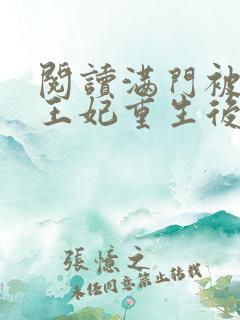 閱讀滿門被
王妃重生後
張憶之
未經同意禁止轉載